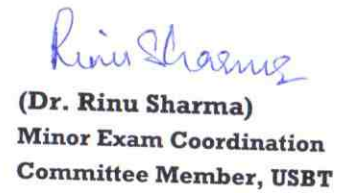 Rinu Sharma
(Dr. Rinu Sharma)
Minor Exam Coordination
Committee Member, USBT